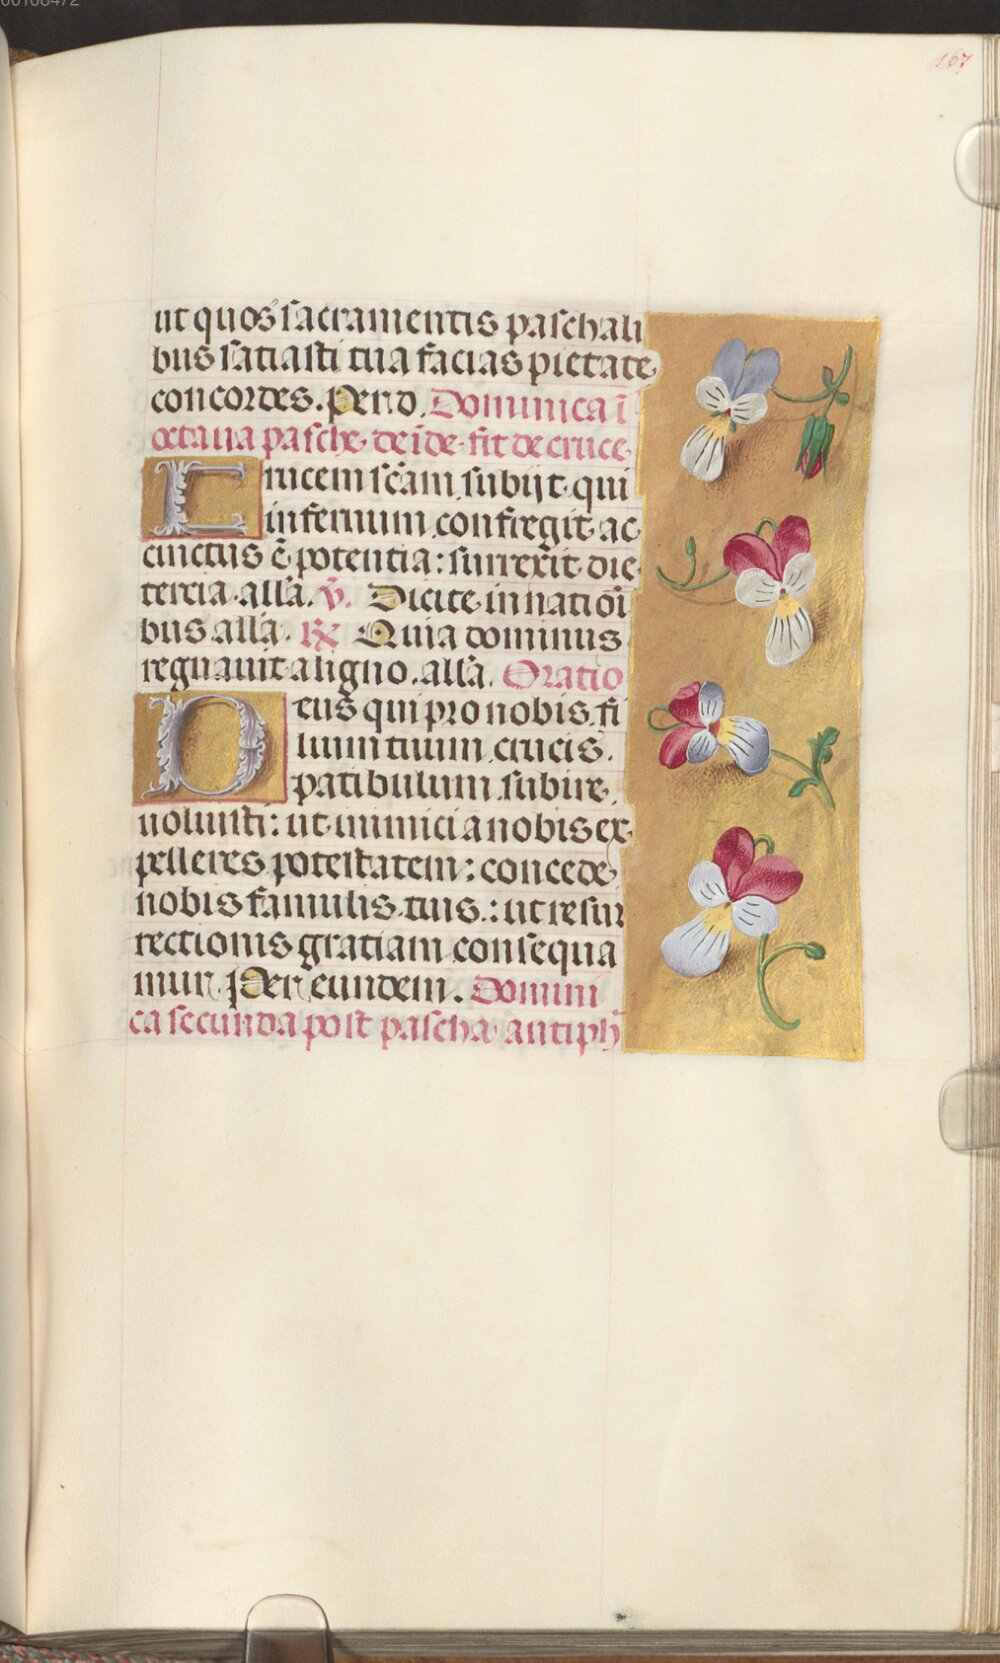 00108472
167
ut quos sacramentis paschali
bus satiasti tua facias pietate
concordes. Per d. Dominica ī
octaua pasche. deīde. fit de cruce.
Crucem scām subijt qui
infernum confregit ac
cinctus ē potentia: surrexit die
tercia. alla. v̄. Dicite in natiōi
bus alla. ℟ Quia dominus
regnauit a ligno. alla. Oratio
Deus qui pro nobis fi
lium tuum crucis
patibulum subire
uoluisti: ut inimici a nobis ex
pelleres potestatem: concede
nobis famulis tuis: ut resur
rectionis gratiam consequa
mur. Per eundem. Domini
ca secunda post pascha antiph̄